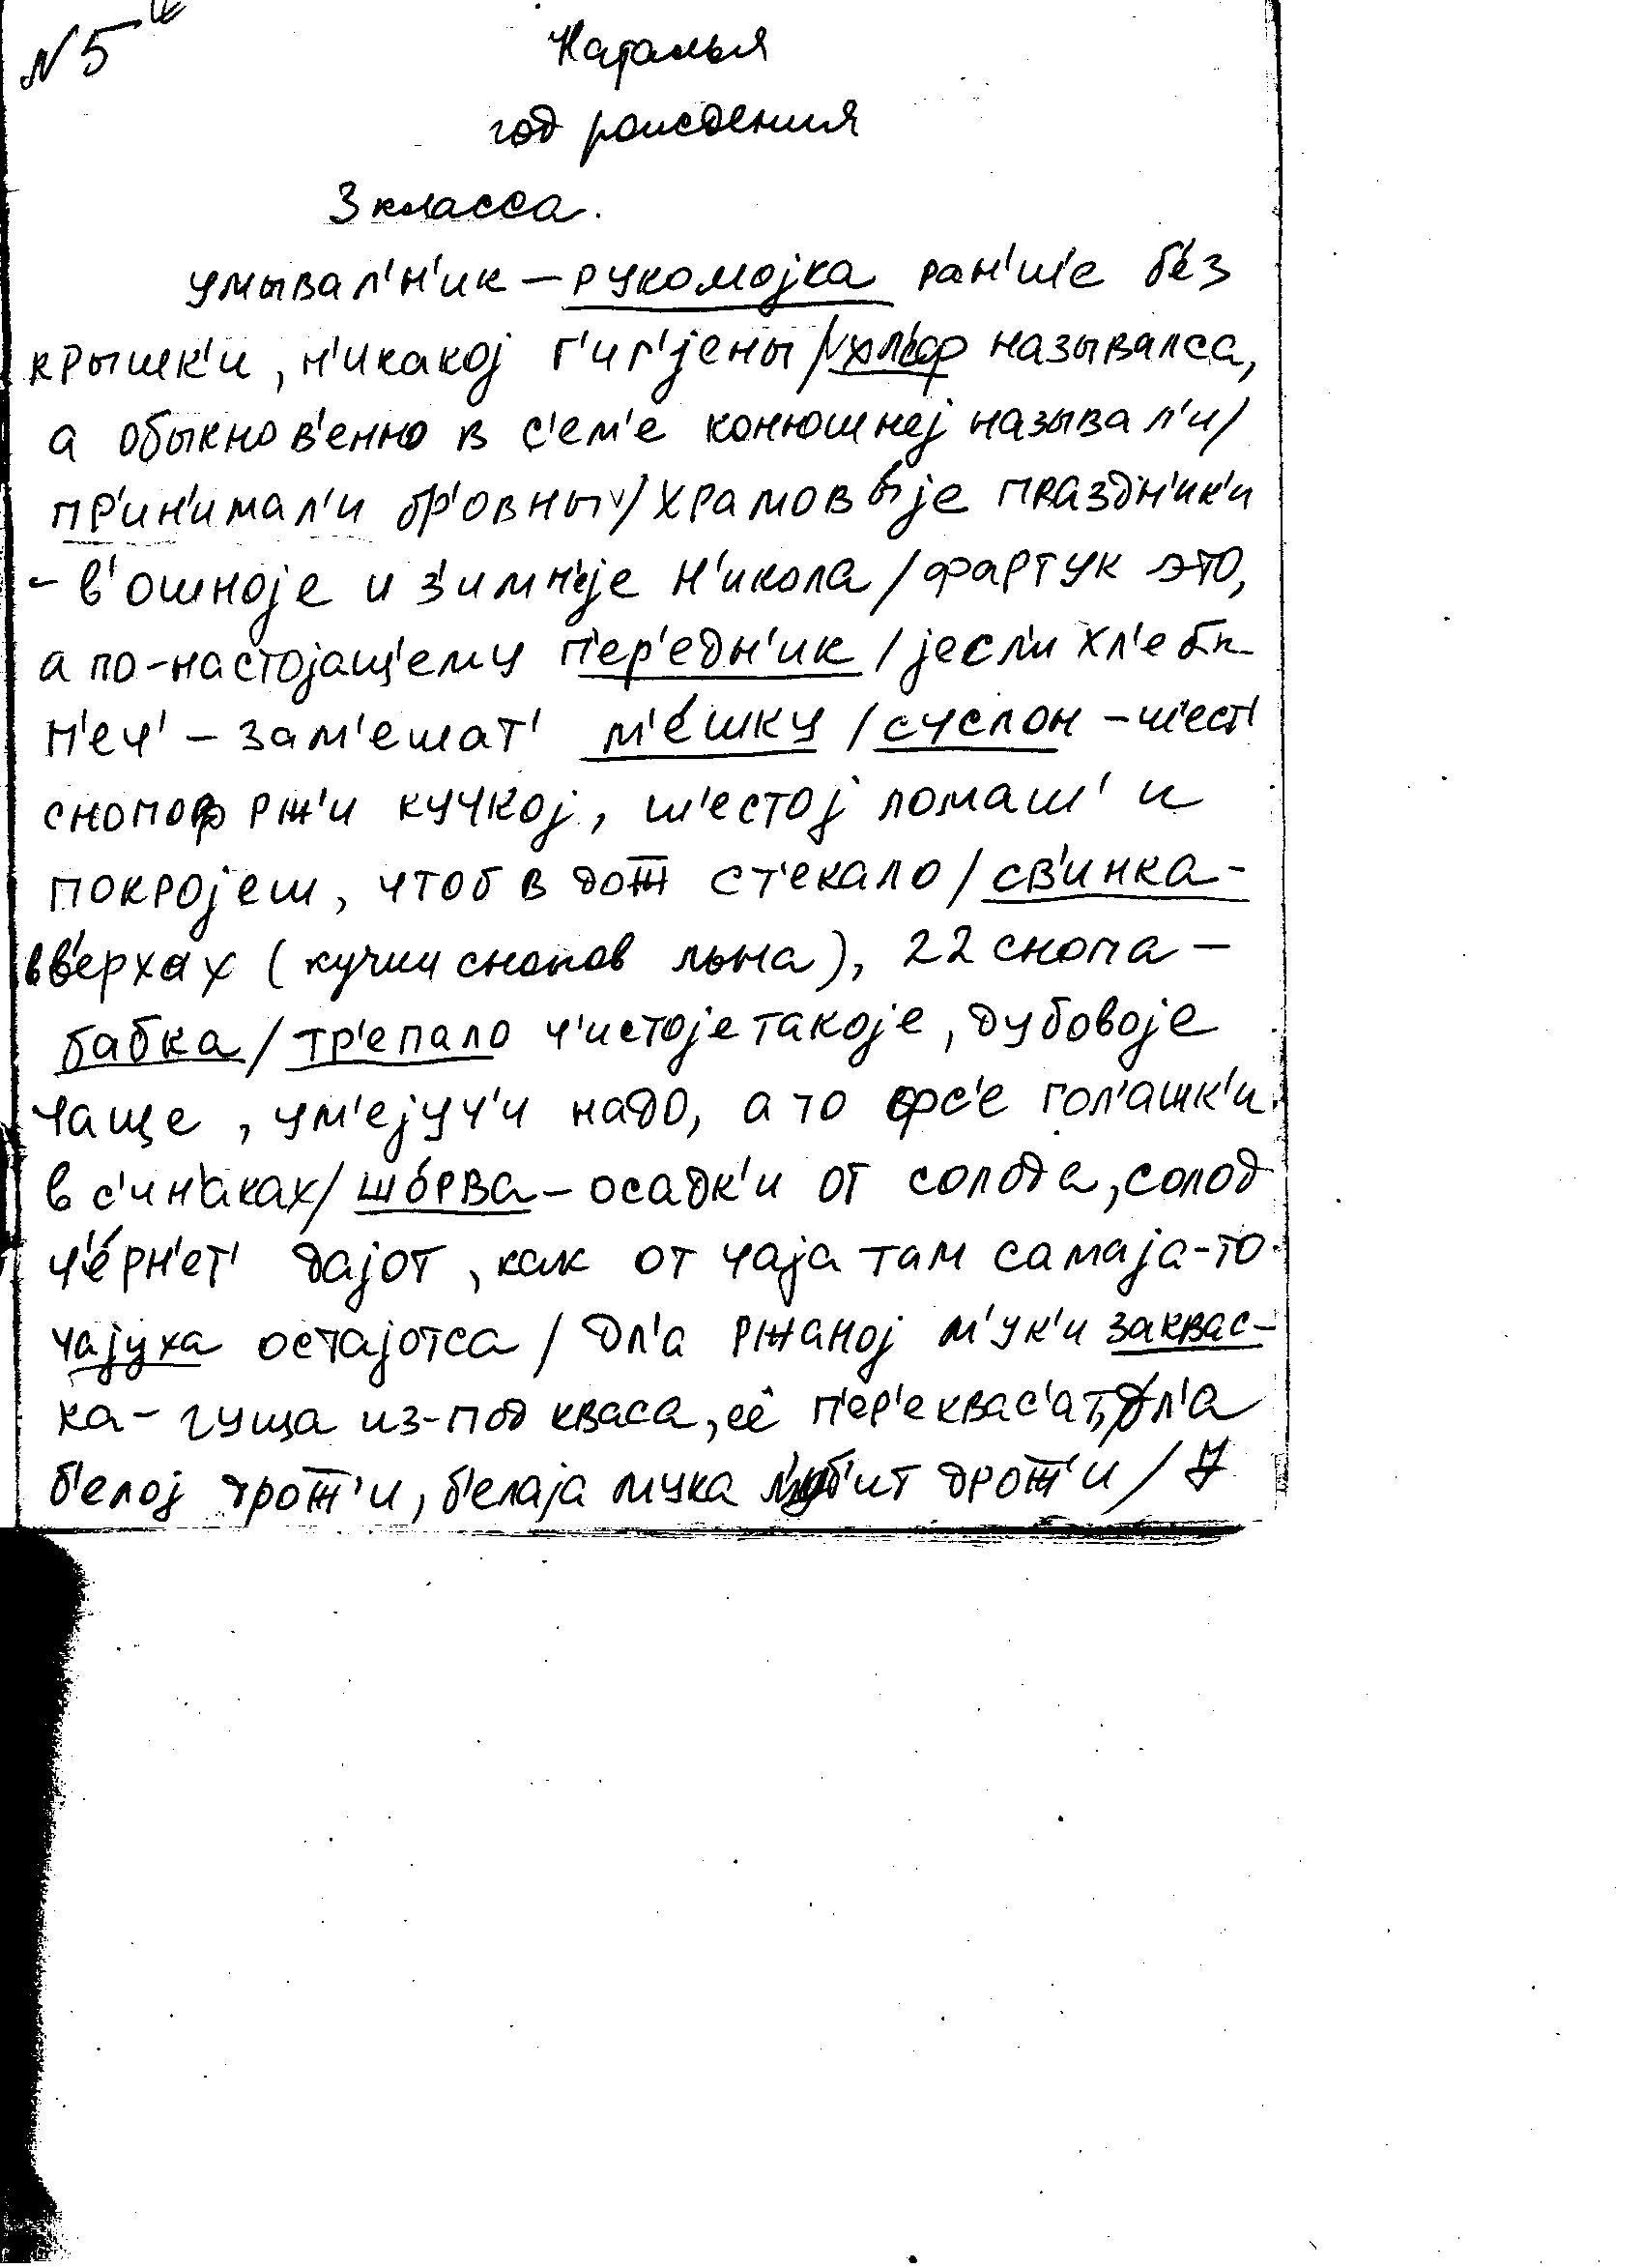 №5
Наталья
год рождения
3 класса.
умывал'н'ик – рукомојка ран'ш'е бе́з
крышк'и, н'икакој г'иг'јены / хл'еф называлса,
а обыкнов'енно в с'ем'е конюшнеј называл'и /
пр'ин'имал'и бр'овны / храмовыје праздн'ик'и
– в'ошноје и з'имн'еје Н'икола / фартук это,
а по-настојащ'ему п'ер'едн'ик / јесл'и хл'еб п
н'еч' – зам'ешат' м'е́шку / суслон – ш'ест'
снопоф рж'и кучкој, ш'естој ломаш' и
покројеш, чтоб в дож ст'екало / св'инка –
вв'ерхах (кучки снопов льна), 22 снопа –
бабка / тр'епало ч'истоје такоје, дубовоје
чаще, ум'ејуч'и надо, а то фс'е гол'ашк'и
в с'ин'аках / шо́рва – осадк'и от солода, солод
ч'е́рн'ет' дајот, как от чаја там самаја-то
чајуха остајотса / дл'а ржаној м'ук'и заквас-
ка – гуща из-под кваса, её п'ер'еквас'ат, дл'а
б'елој дрож'и, б'елаја мука л'уб'ит дрож'и / У